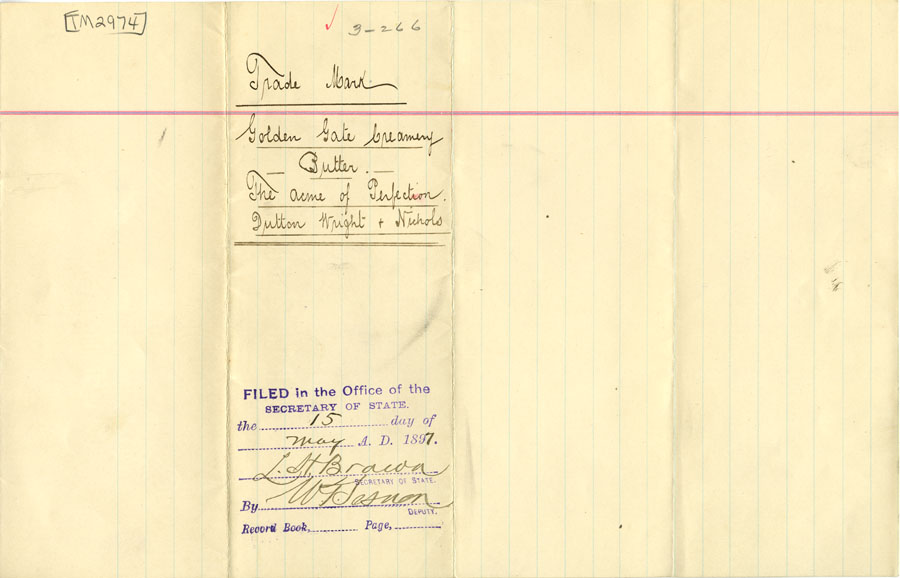 [TM2974]
✓ 3-266
Trade Mark
Golden Gate Creamery
— Butter. —
The acme of Perfection.
Dutton Wright + Nichols
FILED in the Office of the
SECRETARY OF STATE.
the 15 day of
may A. D. 1897.
L. H. Brown
SECRETARY OF STATE.
By
DEPUTY.
Record Book, Page,